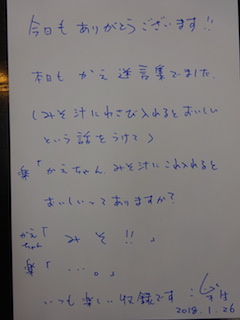 今日も ありがとうございます!!
本日も かえ迷言集でした。
(みそ汁にわさび入れるとおいしい
という話をうけて)
楽「かえちゃん、みそ汁にこれ入れると
おいしいってありますか?
かえちゃん「 みそ!! 」
楽「 ・・・。」
いつも楽しい収録です :
2018.1.26